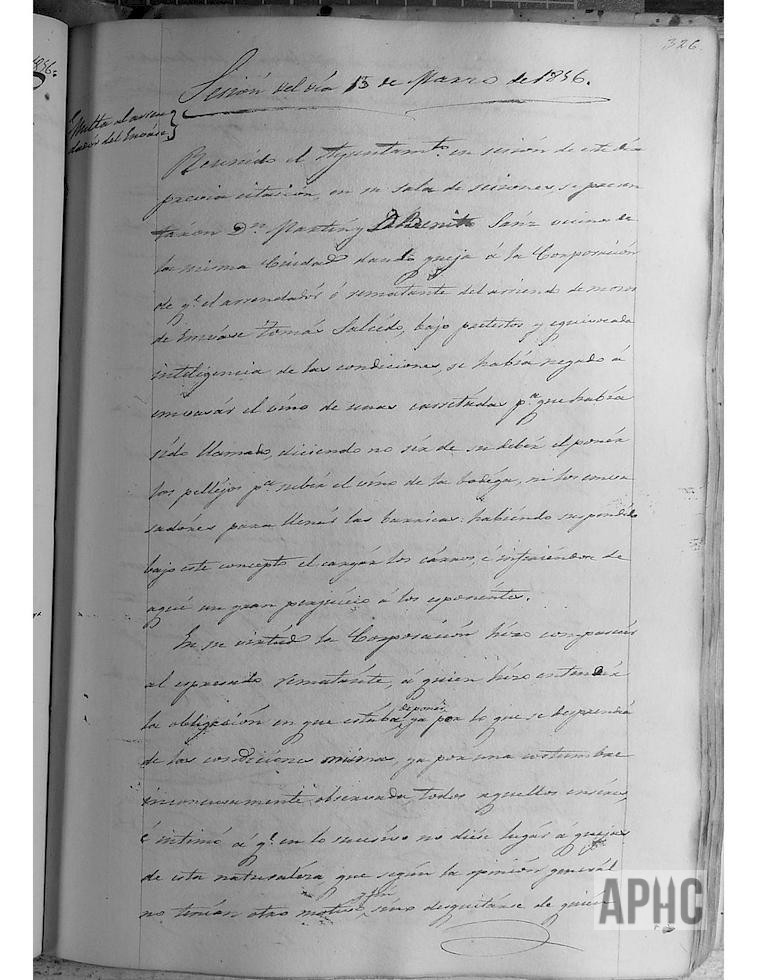 1856.
326.
Sesión del día 13 de Marzo de 1856.
Multa al arren
dador del Envase
Reunido el Ayuntamto. en sesión de este día
previa citación, en su sala de sesiones, se presen
taron Dn. Martín y Dn. Benito Sanz vecinos de
la misma Ciudad dando queja á la Corporación
de q.e el arrendador ó rematante del arriendo de mozos
de Envase Tomás Salcédo, bajo pretestos y equivocada
inteligencia de las condiciones, se había negado á
envasár el vino de unas carretadas p.a que había
sido llamado, diciendo no sér de su debér el ponér
los pelléjos p.a subir el vino de la bodéga, ni los enva
sadores para llenár las barricas: habiendo suspendido
bajo este concepto el cargár los cárros, é infiriéndose de
aquí un gran perjuício á los esponéntes.
En su virtúd la Corporación hizo comparecér
al espresado rematánte, á quien hizo entendér
la obligación en que estába de ponér ya por lo que se desprendía
de las condiciónes mismas, ya por una costumbre
inconcusamente observada, todos aquellos enséres,
é intimó á q.e en lo sucesivo no diése lugár á quejas
de esta naturaléza que según la opinión generál
no tenían otro motivo sino desquitárse de quien
APHC